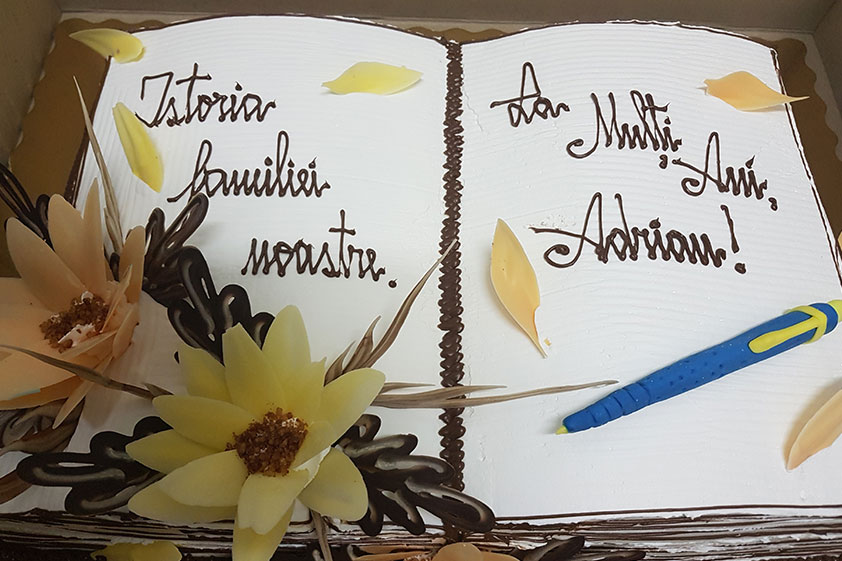 Istoria
familiei
noastre.
La Mulți Ani,
Adrian!